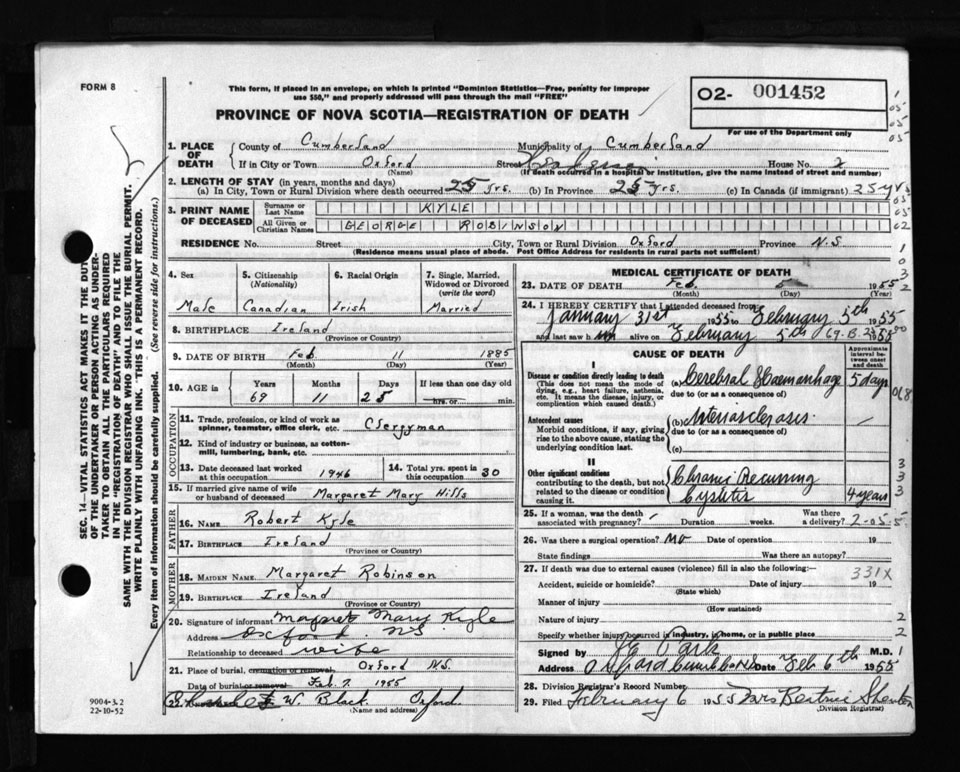 FORM 8
This form, if placed in an envelope, on which is printed "Dominion Statistics—Free, penalty for improper
use $50," and properly addressed will pass through the mail "FREE"
PROVINCE OF NOVA SCOTIA—REGISTRATION OF DEATH
02- 001452
For use of the Department only
1. PLACE OF DEATH
County of Cumberland Municipality of Cumberland
If in City or Town Oxford Street House No. 2
(Name) (If death occurred in a hospital or institution, give the name instead of street and number)
2. LENGTH OF STAY (in years, months and days)
(a) In City, Town or Rural Division where death occurred 25 yrs. (b) In Province 25 yrs. (c) In Canada (if immigrant) 25 yrs
3. PRINT NAME OF DECEASED
Surname or Last Name KYLE
All Given or Christian Names GEORGE ROBINSON
RESIDENCE No. Street City, Town or Rural Division Oxford Province N.S.
(Residence means usual place of abode. Post Office Address for residents in rural parts not sufficient)
4. Sex
Male
5. Citizenship
(Nationality)
Canadian
6. Racial Origin
Irish
7. Single, Married, Widowed or Divorced
(write the word)
Married
8. BIRTHPLACE Ireland
(Province or Country)
9. DATE OF BIRTH Feb. 11 1885
(Month) (Day) (Year)
10. AGE in
Years 69
Months 11
Days 25
If less than one day old
hrs. or min.
OCCUPATION
11. Trade, profession, or kind of work as
spinner, teamster, office clerk, etc. Clergyman
12. Kind of industry or business, as cotton-
mill, lumbering, bank, etc.
13. Date deceased last worked
at this occupation 1946
14. Total yrs. spent in
this occupation 30
15. If married give name of wife
or husband of deceased Margaret Mary Hills
FATHER
16. NAME Robert Kyle
17. BIRTHPLACE Ireland
(Province or Country)
MOTHER
18. MAIDEN NAME Margaret Robinson
19. BIRTHPLACE Ireland
(Province or Country)
20. Signature of informant Margaret Mary Kyle
Address Oxford. N.S.
Relationship to deceased wife
21. Place of burial, cremation or removal Oxford N.S.
Date of burial or removal Feb. 7 1955
22. W. Black. Oxford.
(Name and address)
MEDICAL CERTIFICATE OF DEATH
23. DATE OF DEATH Feb. 5 1955
(Month) (Day) (Year)
24. I HEREBY CERTIFY that I attended deceased from
January 31st 1955 to February 5th 1955
and last saw h alive on February 5th 1955
CAUSE OF DEATH
Approximate interval between onset and death
I
Disease or condition directly leading to death
(This does not mean the mode of
dying, e.g., heart failure, asthenia,
etc. It means the disease, injury, or
complication which caused death.)
(a) Cerebral Haemorrhage 5 days
due to (or as a consequence of)
Antecedent causes
Morbid conditions, if any, giving
rise to the above cause, stating the
underlying condition last.
(b) Arteriosclerosis.
due to (or as a consequence of)
(c)
II
Other significant conditions
contributing to the death, but not
related to the disease or condition
causing it.
Chronic Recurring
Cystitis 4 years
25. If a woman, was the death
associated with pregnancy? Duration weeks. Was there
a delivery?
26. Was there a surgical operation? No Date of operation 19
State findings Was there an autopsy?
27. If death was due to external causes (violence) fill in also the following:—
331X
Accident, suicide or homicide? Date of injury 19
(State which)
Manner of injury
(How sustained)
Nature of injury
Specify whether injury occurred in industry, in home, or in public place
Signed by Park M.D.
Address Oxford Date Feb 6th 1955
28. Division Registrar's Record Number
29. Filed February 6 1955 Mrs Beatrice Shenton
(Division Registrar)
SEC. 14—VITAL STATISTICS ACT MAKES IT THE DUTY
OF THE UNDERTAKER OR PERSON ACTING AS UNDER-
TAKER TO OBTAIN ALL THE PARTICULARS REQUIRED
IN THE "REGISTRATION OF DEATH" AND TO FILE THE
SAME WITH THE DIVISION REGISTRAR WHO SHALL ISSUE THE BURIAL PERMIT.
WRITE PLAINLY WITH UNFADING INK. THIS IS A PERMANENT RECORD.
Every item of information should be carefully supplied. (See reverse side for instructions.)
9004-3.2
22-10-52